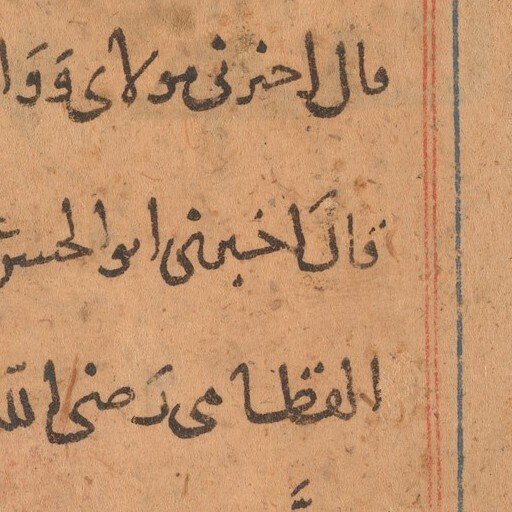 قال اخبرنى مولاى و
قال اخبرنى ابو الحسن
القظامى رضى الله